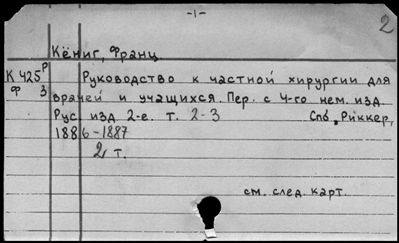 -1-
2
Кёниг, Франц
К 425 Р Руководство к частной хирургии для
Ф З врачей и учащихся. Пер. с 4-го нем. изд.
Рус. изд. 2-е. т. 2-3 Спб, Риккер,
1886-1887
2 т.
см. след. карт.